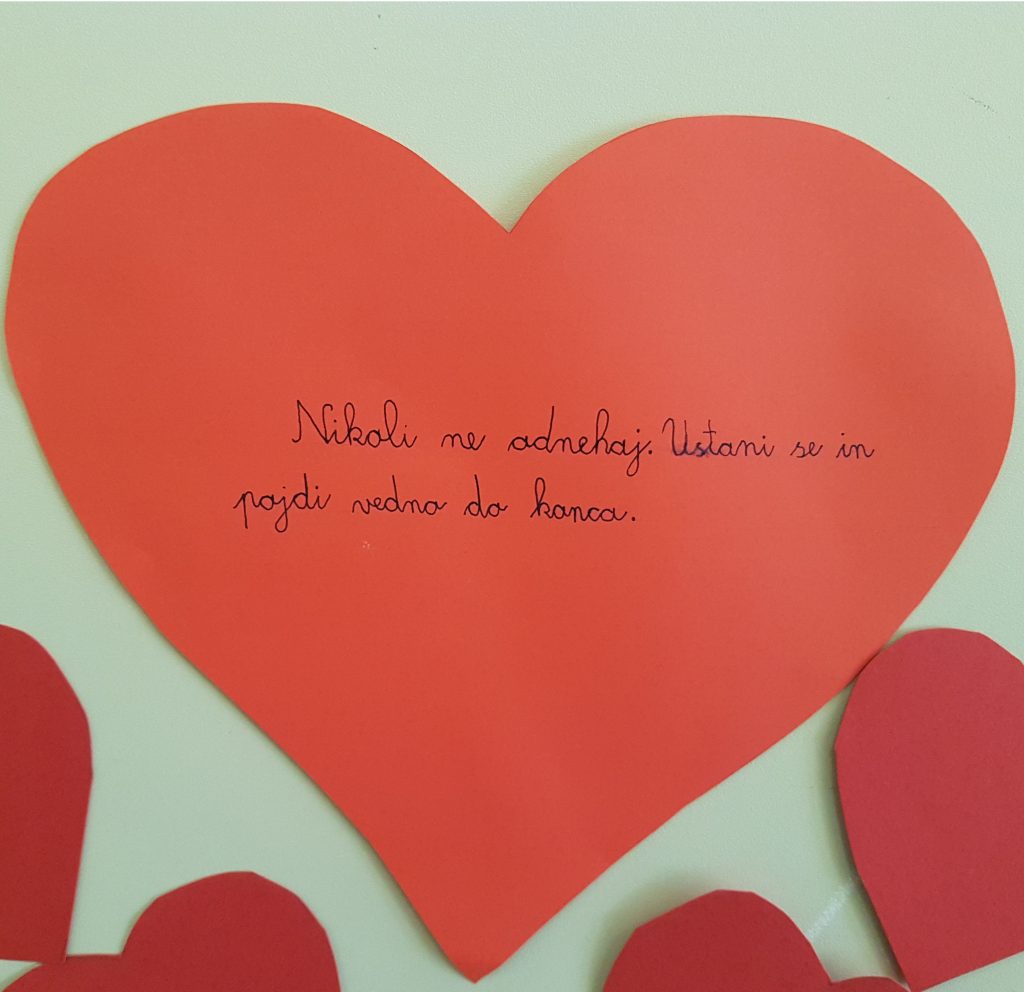 Nikoli ne odnehaj. Ustani se in
pojdi vedno do konca.